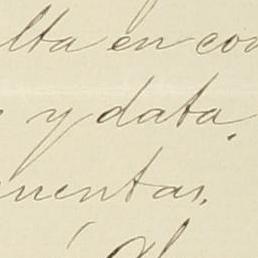 lta en con
y data.
mentas.